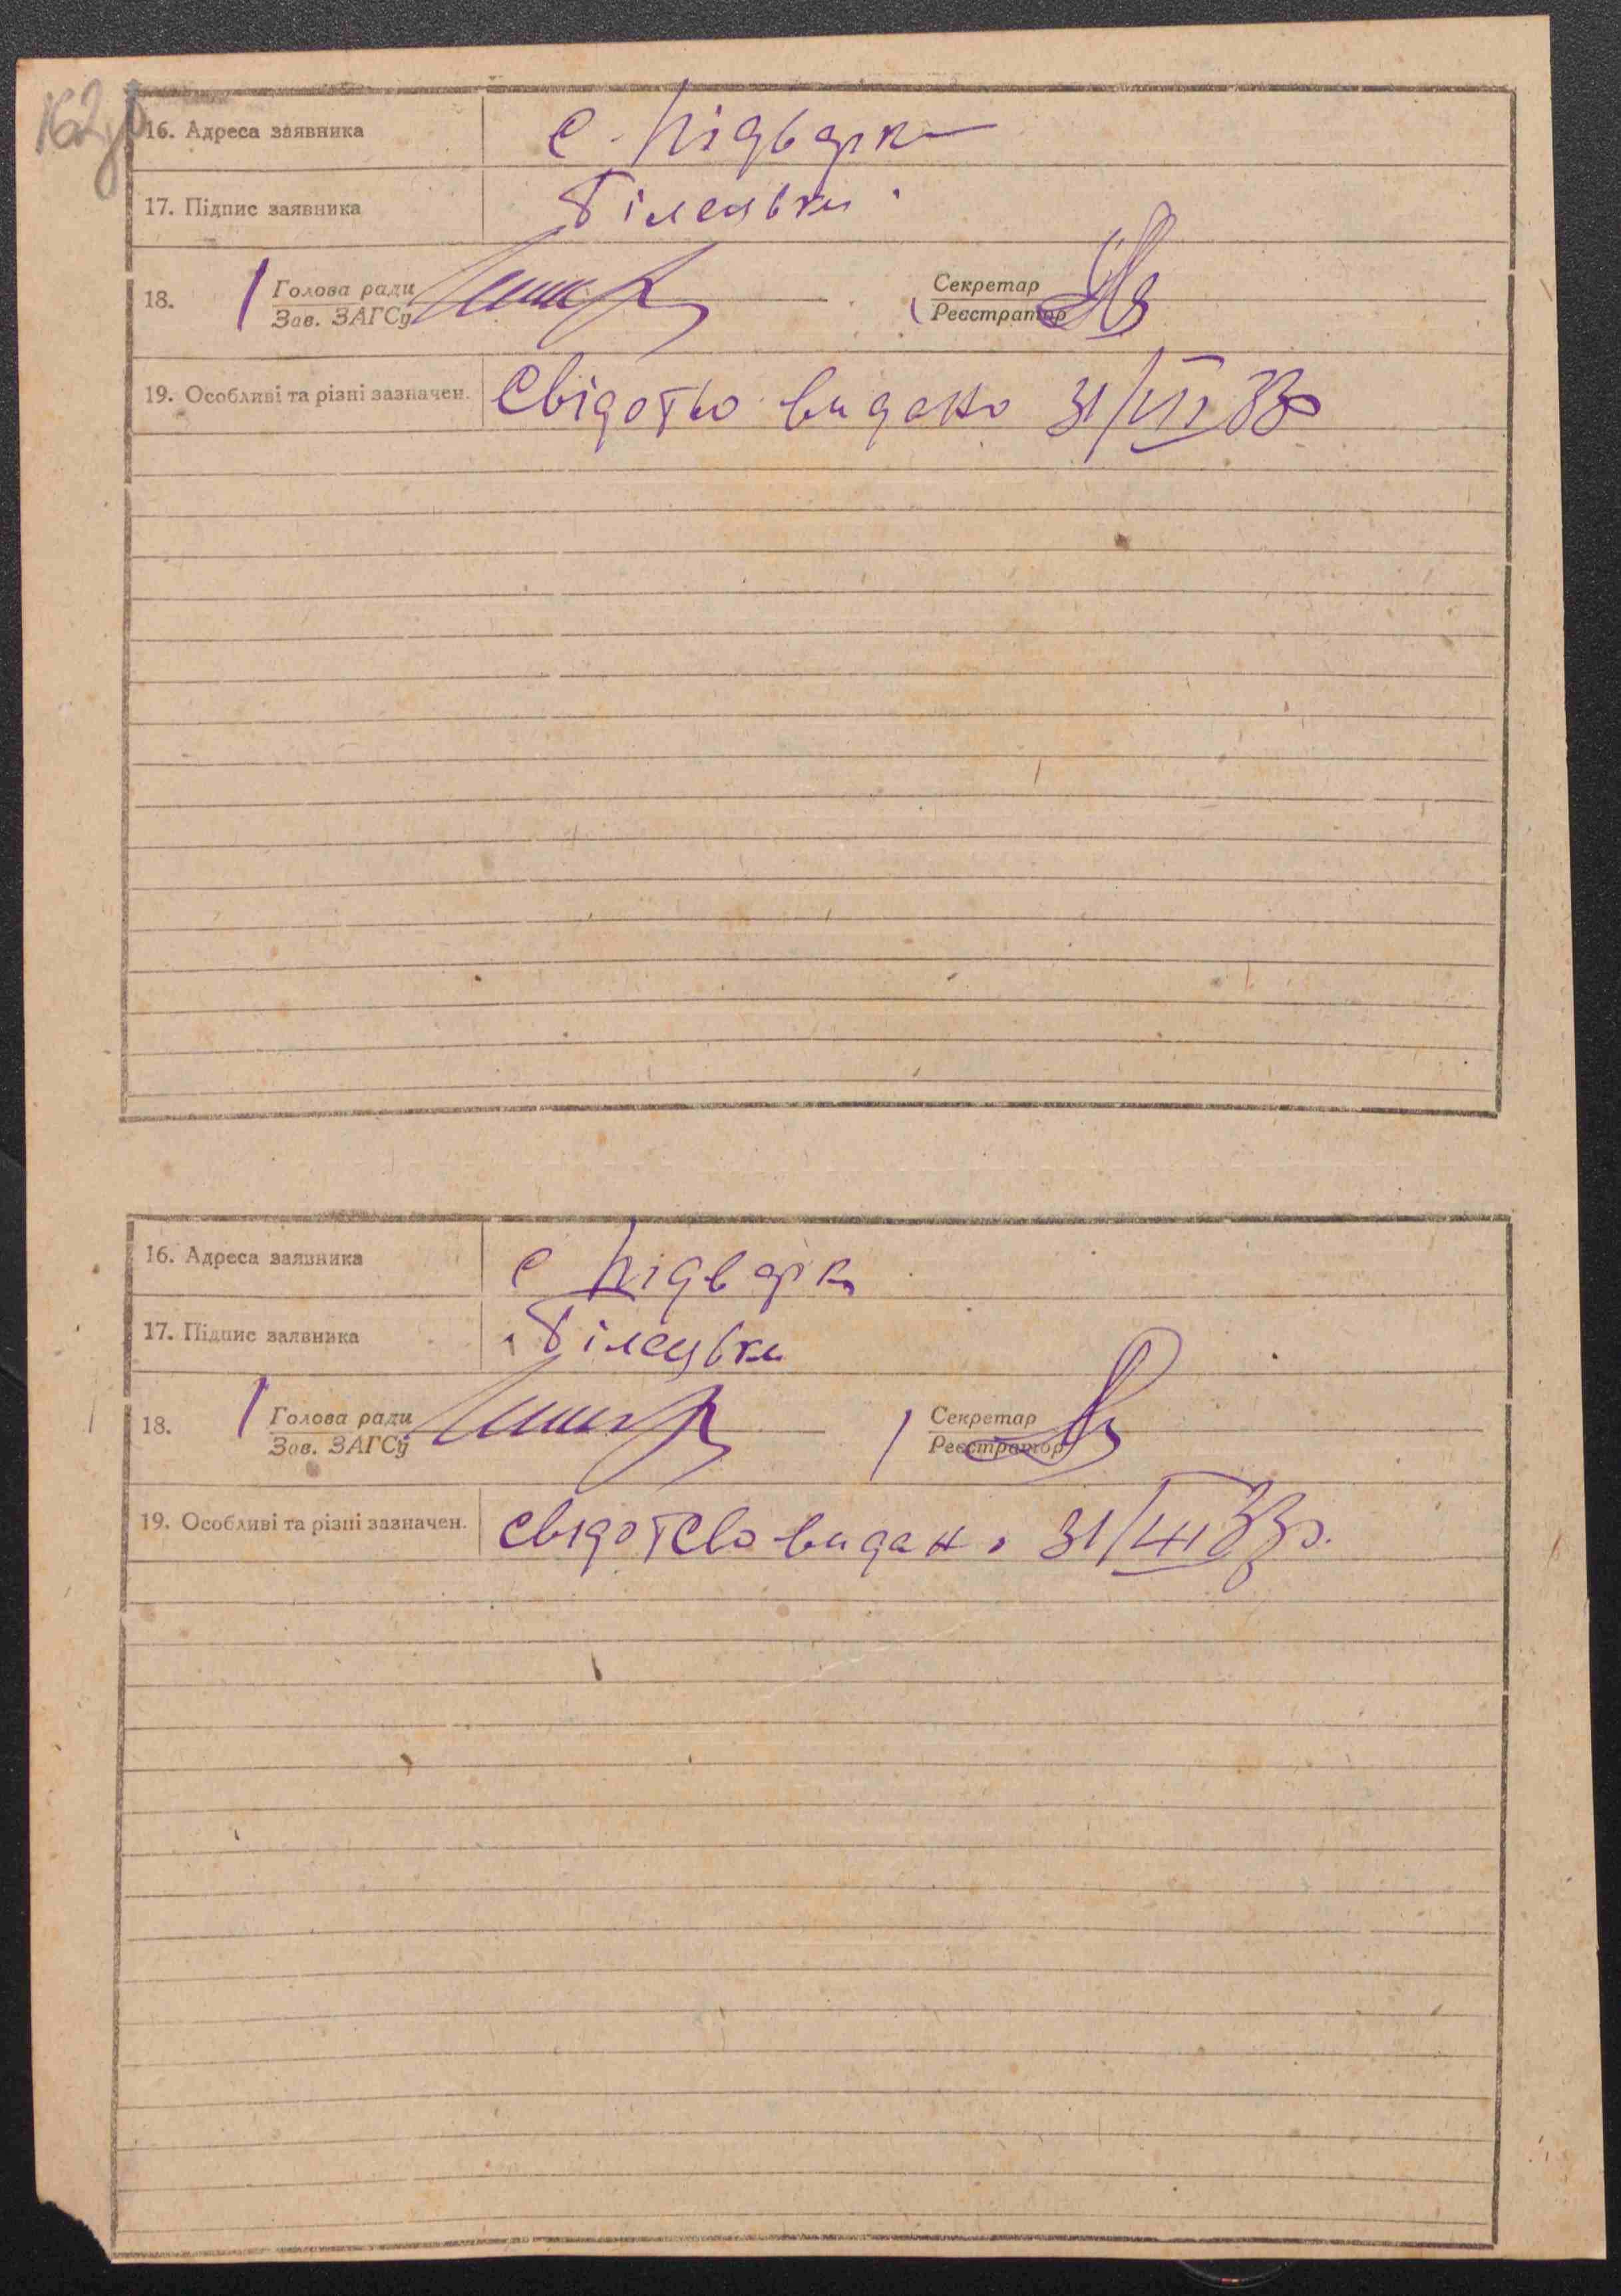 162зв
16. Адреса заявника с. Підварки
17. Підпис заявника Білецьки
18. Голова ради Секретар
Зав. ЗАГСу Реєстратор
19. Особливі та різні зазначен. Свідотво видано 31/VII 33р
16. Адреса заявника с Підварк
17. Підпис заявника Білецьки
18. Голова ради Секретар
Зав. ЗАГСу Реєстратор
19. Особливі та різні зазначен. Свідотсво видано 31/VII 33р.